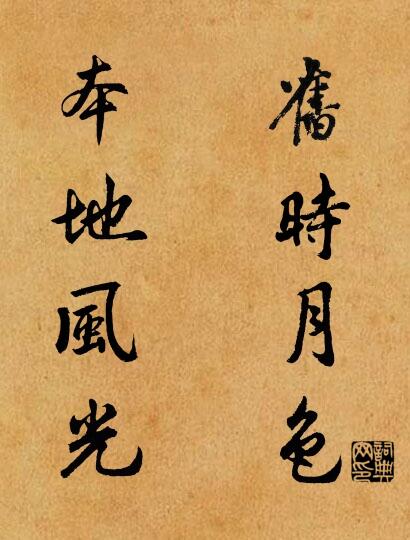 舊時月色
本地風光
詞典网印